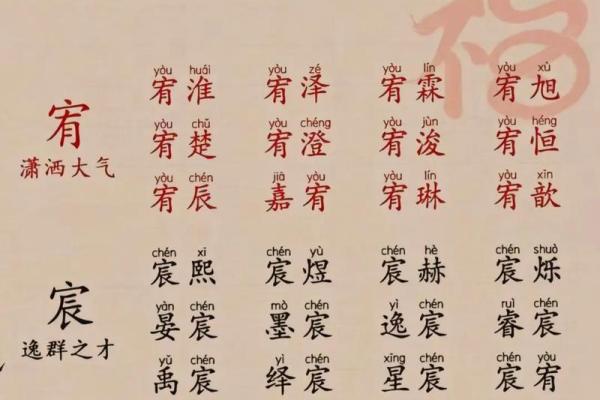 yòu huái yòu zé yòu lín yòu xù
宥淮 宥泽 宥霖 宥旭
宥
yòu chǔ yòu chéng yòu jùn yòu héng
宥楚 宥澄 宥浚 宥恒
潇洒大气
yòu chén jiā yòu yòu lín yòu xīn
宥辰 嘉宥 宥琳 宥歆
chén xī chén yù chén hè chén shuò
宸熙 宸煜 宸赫 宸烁
宸
yàn chén mò chén yì chén ruì chén
晏宸 墨宸 逸宸 睿宸
逸群之才
yǔ chén yì chén xīng chén chén yòu
禹宸 绎宸 星宸 宸宥